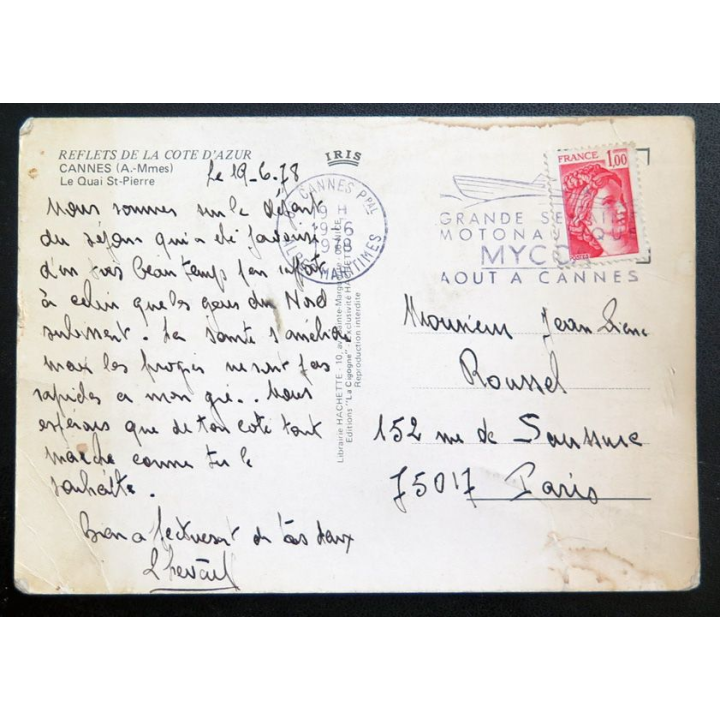 REFLETS DE LA COTE D'AZUR
CANNES (A.-Mmes)
Le Quai St-Pierre
IRIS
Le 19-6.78
Nous sommes sur le départ
du séjour qui a été favorisé
d'un très beau temps
à celui que les gens du Nord
subissent. La santé s'améliore
mais les progrès ne sont pas
rapides à mon gré.. Nous
espérons que de ton coté tout
marche comme tu le
souhaite.
Bien affectueusement de nous deux
CANNES Ppal
9 H
19-6
1978
ALPES MARITIMES
GRANDE SE
MOTONA
MYCO
AOUT A CANNES
FRANCE 1,00
Librairie HACHETTE - 10, av.
Editions "La Cigogne" - Exclusivité HACHETTE
Reproduction interdite
Monsieur Jean Pierre
Roussel
152 rue de Saussure
75017 Paris